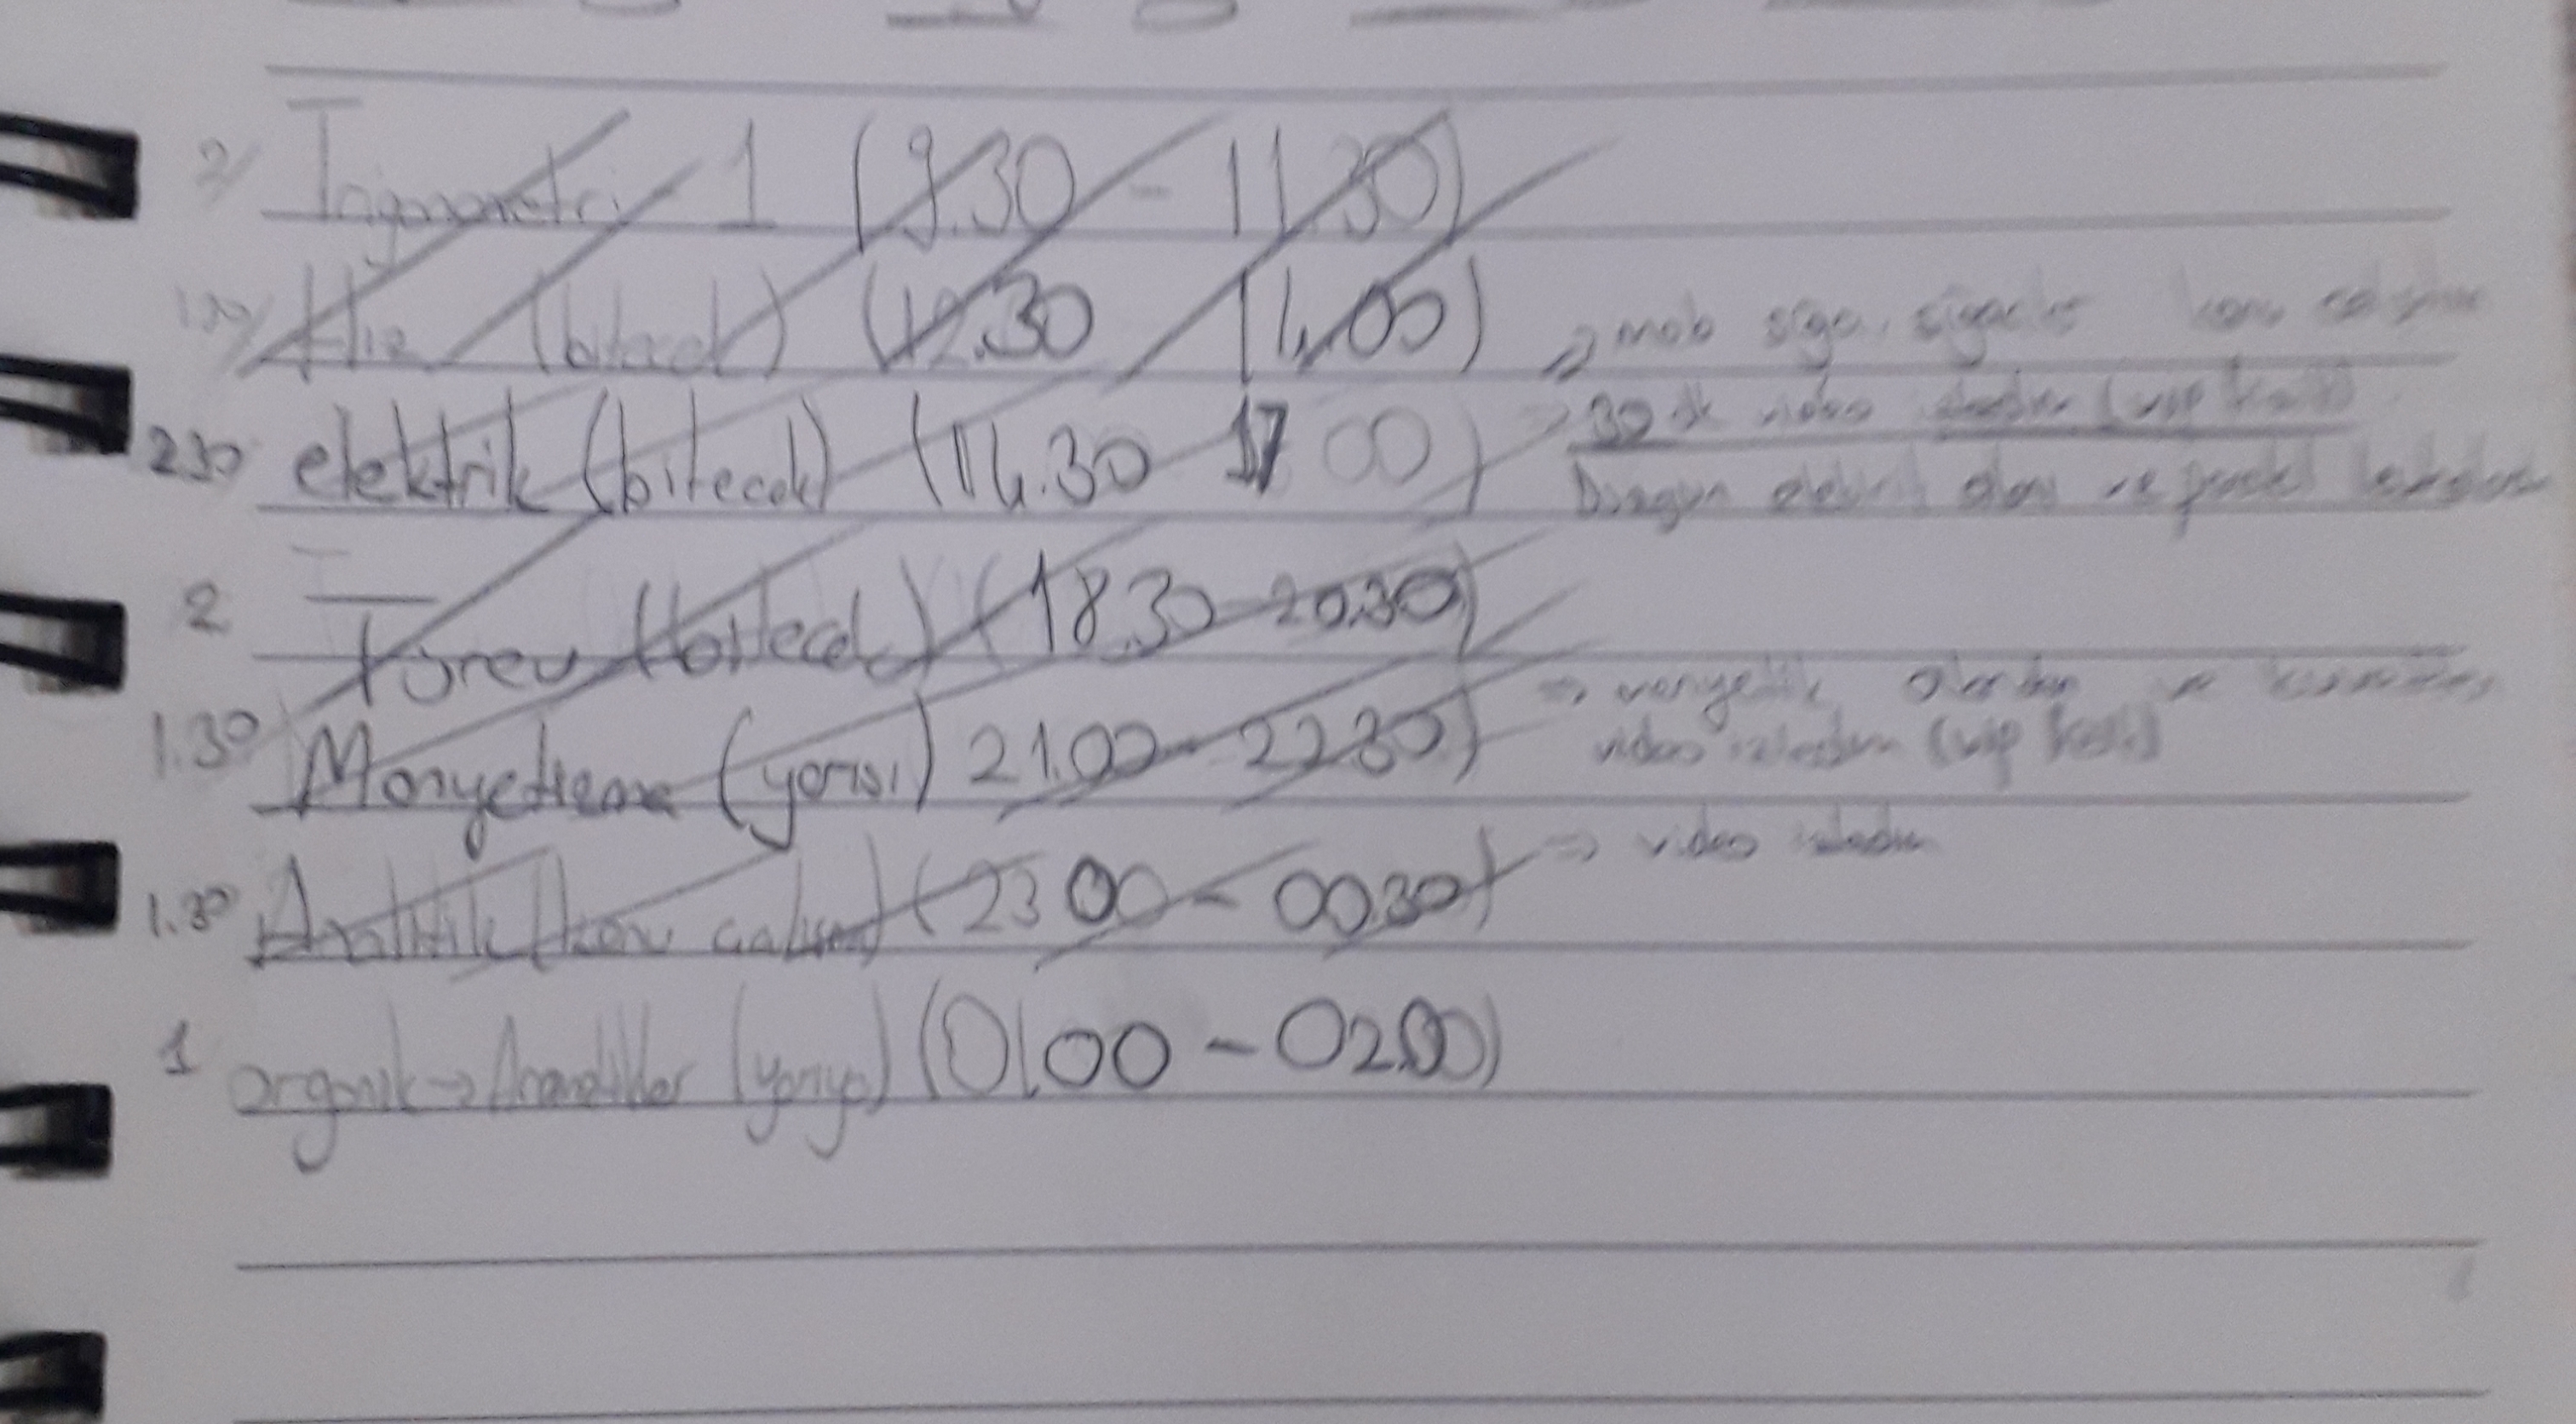 2/ Trigonometri 1 (9.30 - 11.30)
1.30/ Hız (bitecek) (12.30 14.00)
⇒ konu
2.30 elektrik (bitecek) (14.30 17 00)
⇒ 30 dk video izledim (vip
elektrik alan ve paralel
2 Türev (bitecek) (18.30-20.30)
1.30 Manyetizma (yarısı) 21.00-22.30)
⇒ manyetik alandan ve
video izledim (vip
1.30 Analitik (konu çalışma) (23 00 - 00.30)
⇒ video izledim
1 organik → (yarıya) (01.00 - 02.00)